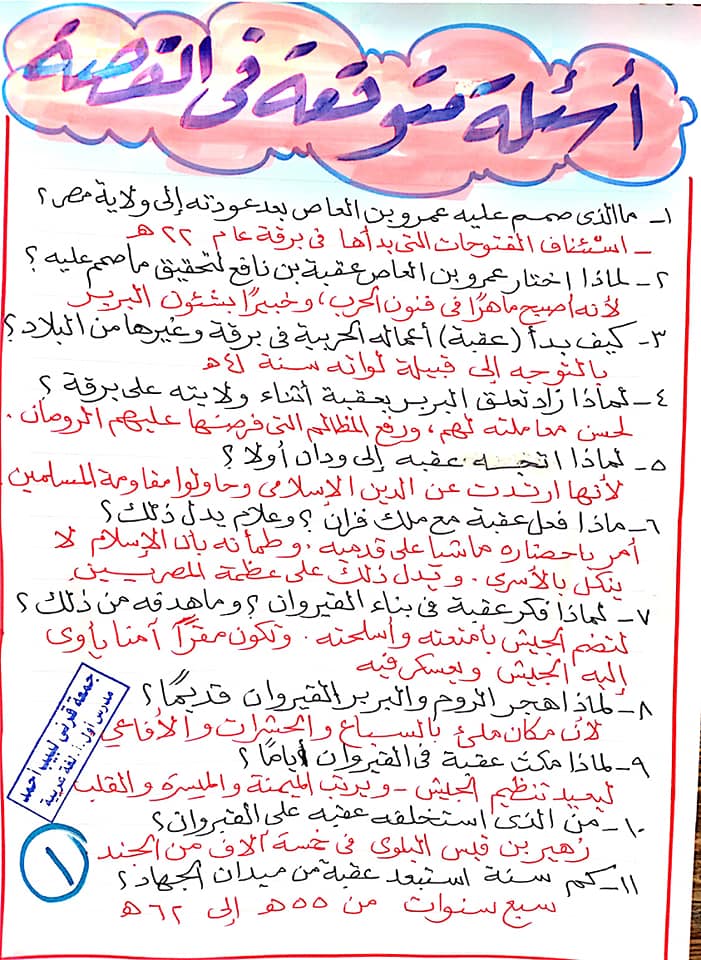 أسئلة متوقعة فى القصة
١- ما الذى صمم عليه عمرو بن العاص بعد عودته إلى ولاية مصر؟
- استئناف الفتوحات التى بدأها فى برقة عام ٢٢هـ
٢- لماذا اختار عمرو بن العاص عقبة بن نافع لتحقيق ما صمم عليه؟
لأنه أصبح ماهرًا فى فنون الحرب، وخبيرًا بشئون البربر
٣- كيف بدأ (عقبة) أعماله الحربية فى برقة وغيرها من البلاد؟
بالتوجه إلى قبيلة لواته سنة ٤١هـ
٤- لماذا زاد تعلق البربر بعقبة أثناء ولايته على برقة؟
لحسن معاملته لهم، ورفع المظالم التى فرضها عليهم الرومان.
٥- لماذا اتجه عقبه إلى ودان أولا؟
لأنها ارتدت عن الدين الإسلامى وحاولوا مقاومة المسلمين
٦- ماذا فعل عقبة مع ملك فزان؟ وعلام يدل ذلك؟
أمر بإحضاره ماشيا على قدميه. وطمأنه بأن الإسلام لا
ينكل بالأسرى. ويدل ذلك على عظمة المصريين
٧- لماذا فكر عقبة فى بناء القيروان؟ وما هدفه من ذلك؟
لتضم الجيش بأمتعته وأسلحته. وتكون مقرًا آمنا يأوى
إليه الجيش ويعسكر فيه
٨- لماذا هجر الروم والبربر القيروان قديمًا؟
لأن مكان ملئ بالسباع والحشرات والأفاعي
٩- لماذا مكث عقبة فى القيروان أيامًا؟
ليعيد تنظيم الجيش - ويرتب الميمنة والميسرة والقلب
١٠- من الذى استخلفه عقبه على القيروان؟
زهير بن قيس البلوى فى خمسة آلاف من الجند
١١- كم سنة استبعد عقبة من ميدان الجهاد؟
سبع سنوات من ٥٥هـ إلى ٦٢هـ
جمعة قرنى لبيب احمد
مدرس أول أ. لغة عربية
١